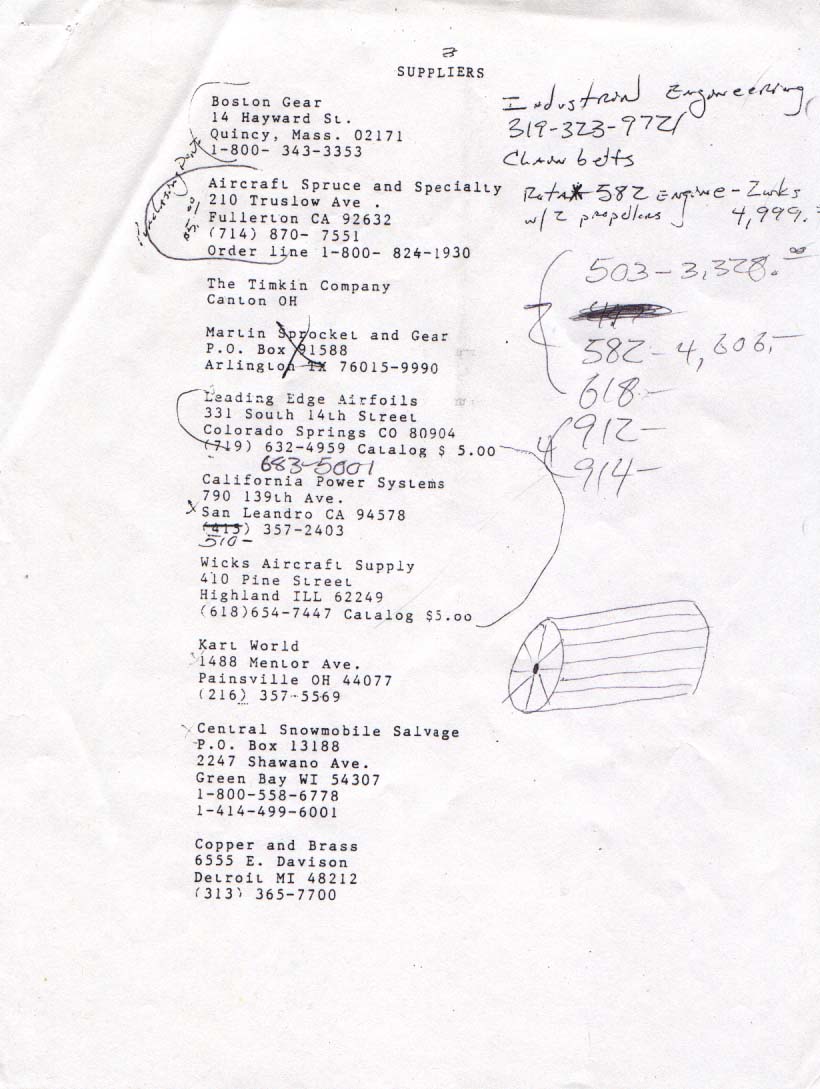 3
SUPPLIERS
Boston Gear
14 Hayward St.
Quincy, Mass. 02171
1-800- 343-3353
Aircraft Spruce and Specialty
210 Truslow Ave .
Fullerton CA 92632
(714) 870- 7551
Order line 1-800- 824-1930
The Timkin Company
Canton OH
Martin Sprocket and Gear
P.O. Box 91588
Arlington TX 76015-9990
Leading Edge Airfoils
331 South 14th Street
Colorado Springs CO 80904
(719) 632-4959 Catalog $ 5.00
683-5001
California Power Systems
790 139th Ave.
San Leandro CA 94578
(415) 357-2403
510-
Wicks Aircraft Supply
410 Pine Street
Highland ILL 62249
(618)654-7447 Catalog $5.00
Kart World
1488 Mentor Ave.
Painsville OH 44077
(216) 357-5569
Central Snowmobile Salvage
P.O. Box 13188
2247 Shawano Ave.
Green Bay WI 54307
1-800-558-6778
1-414-499-6001
Copper and Brass
6555 E. Davison
Detroit MI 48212
(313) 365-7700
Industrial Engineering,
319-323-9721
Chain belts
582 Engine - 2wks
w/2 propellers 4,999.
503-3,328.00
582-4,606.-
618-
912-
914-
4